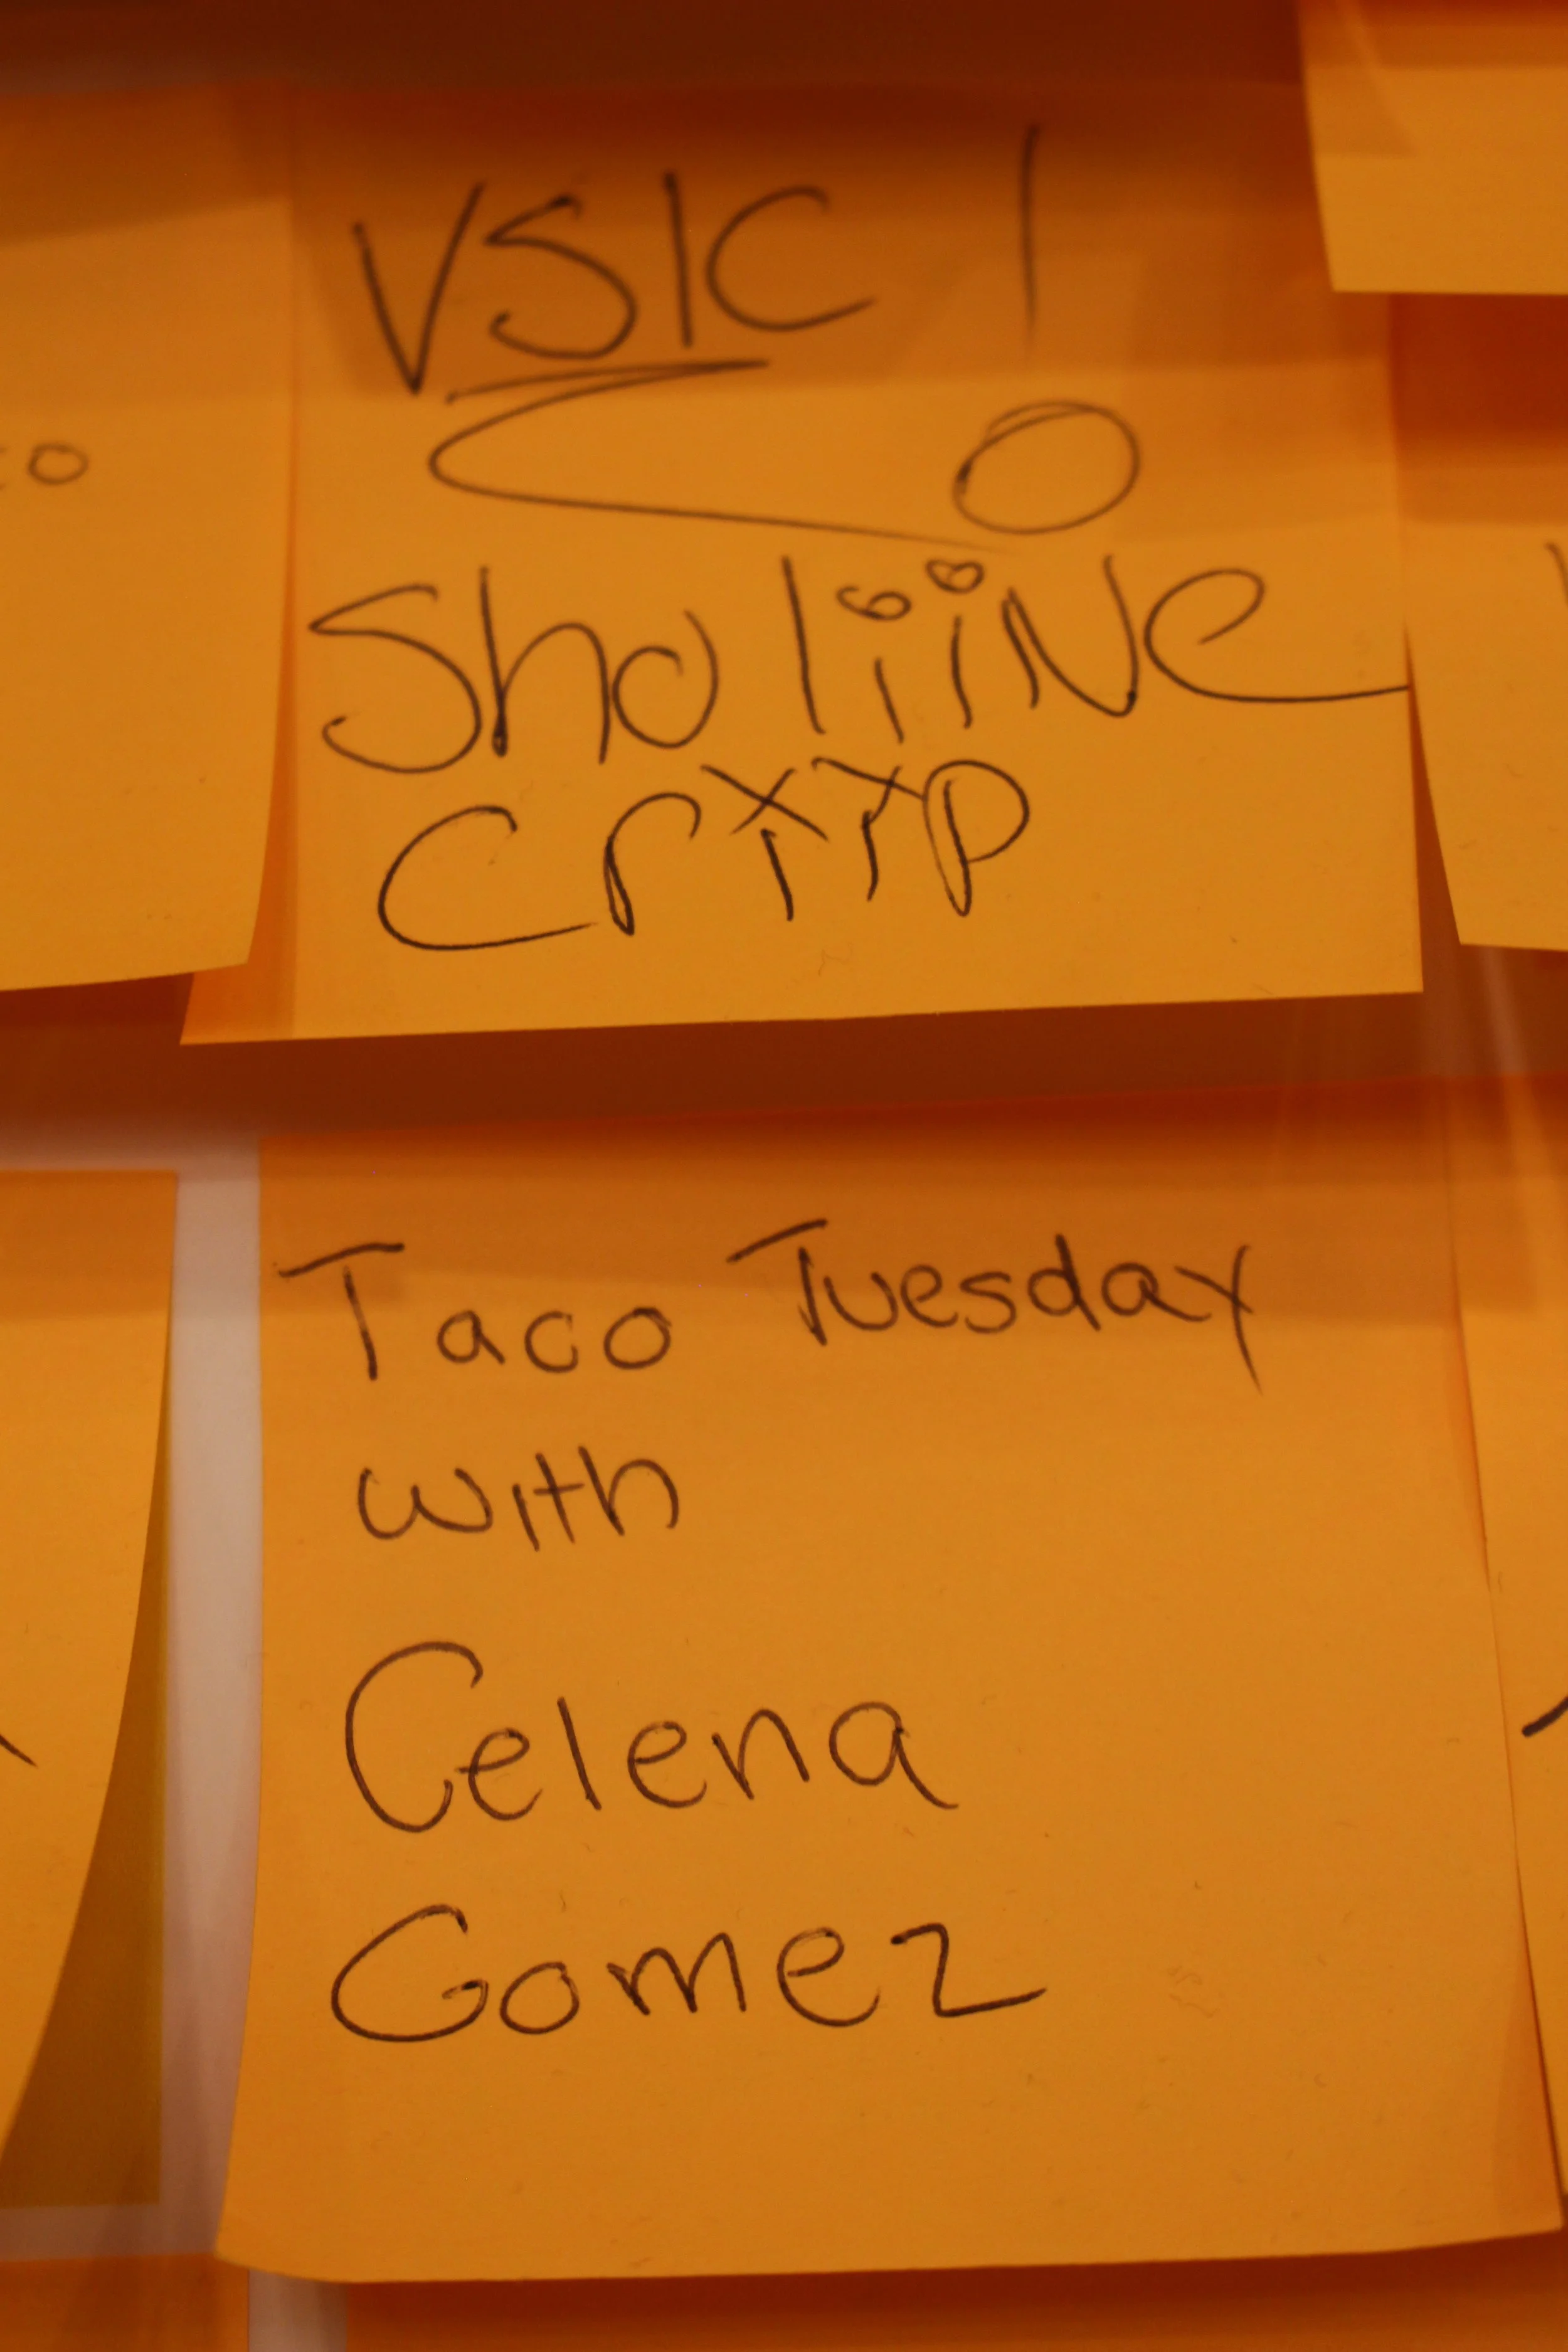 co
VSIC !
Shaliine
Criip
Taco Tuesday
with
Celena
Gomez